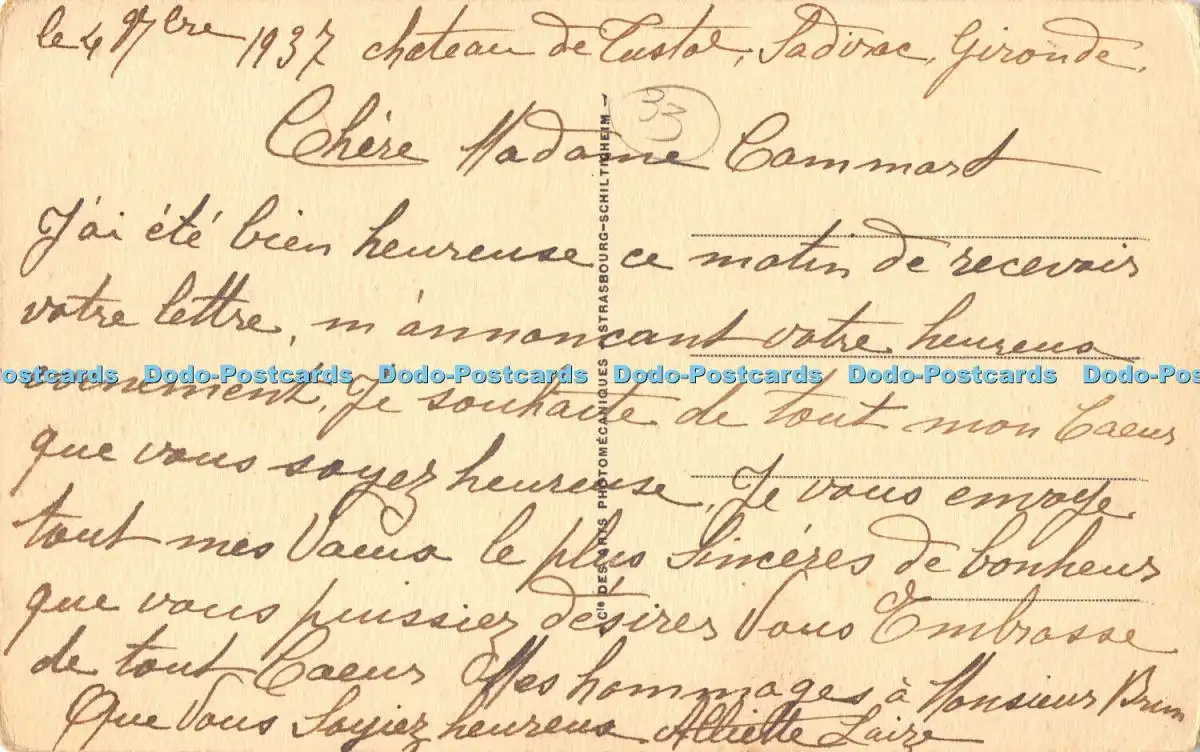 le 4 9bre 1937 chateau de Tustal, Sadirac, Gironde.
33
Chère Madame Commart
J'ai été bien heureuse ce matin de recevoir
votre lettre, m'annoncant votre heureux
evenement, Je souhaite de tout mon Coeur
que vous soyez heureuse, Je vous envoye
tout mes Vaeux le plus Sincères de bonheur
que vous puissiez désirer Vous Embrasse
de tout Coeur Mes hommages à Monsieur Brun
Que Vous Soyiez heureux Alliette
Cie DES ARTS PHOTOMÉCANIQUES STRASBOURG-SCHILTIGHEIM
ostcards Dodo-Postcards Dodo-Postcards Dodo-Postcards Dodo-Postcards Dodo-Pos